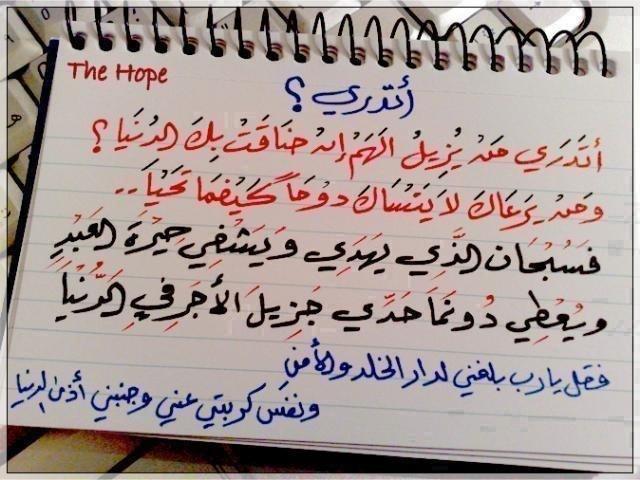 The Hope
أتدري ؟
أَتَدْرِي مَنْ يُزِيلُ الهَمَّ إنْ ضَاقَتْ بِكَ الدُنيَا ؟
وَمَنْ يَرعَاكَ لاَ يَنْسَاكَ دَوْمَاً كَيْفَمَا تَحْيَا ..
فَسُبْحَان الَّذِي يَهْدِي وَيَشْفِي حِيْرَةَ العَبْدِ
ويُعْطِي دُونَمَا حَدِّي جَزِيلَ الأَجْرِ فِي الدُّنْيَا
فقل يارب بلغني لدار الخلد والأمنِ
ونفّس كربتي عني وجنبني أذى الدنيا